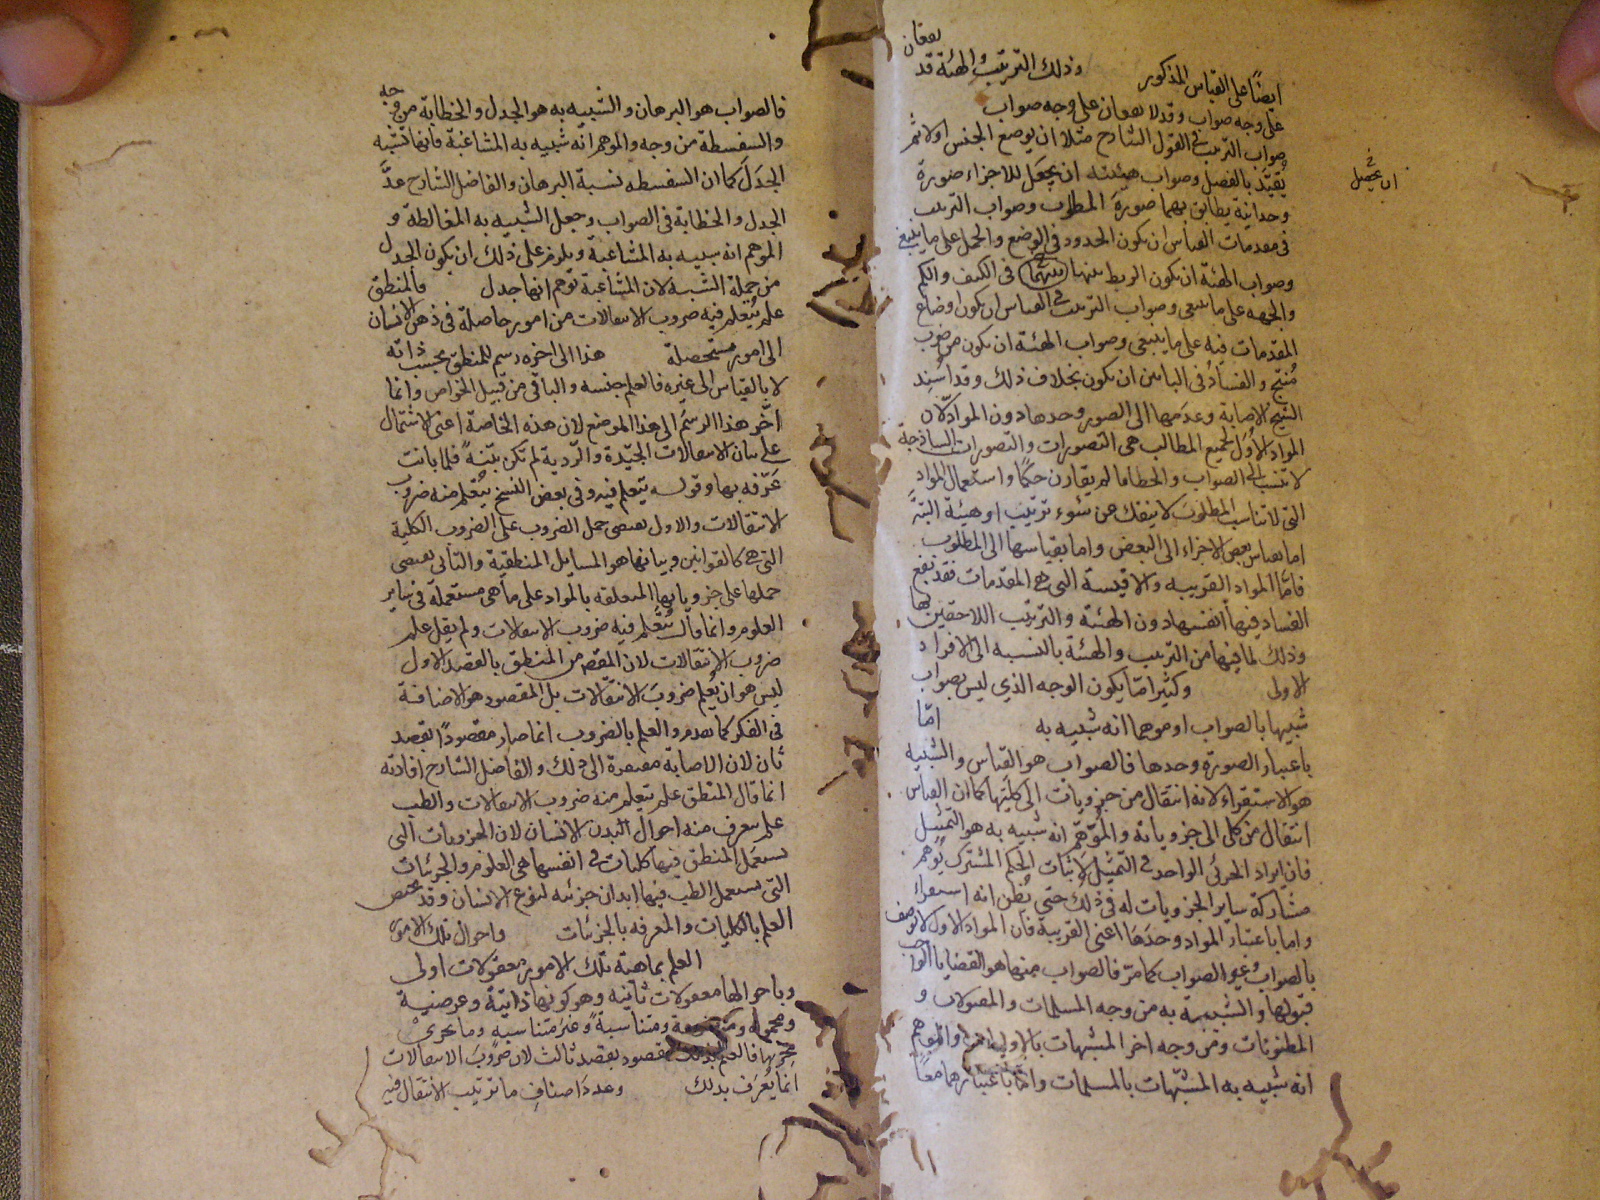 ايضًا على القياس المذكور وذلك الترتيب والهيئة قد يقعان
على وجه صواب وقد لا يقعان على وجه صواب
صواب الترتيب في القول الشارح مثلا ان يوضع الجنس اولا ثم
يُقيّد بالفصل وصواب هيئته ان يجعل للاجزاء صورة
ان يحصل
وحدانية يطابق بهما صورة المطلوب وصواب الترتيب
في مقدمات القياس ان يكون الحدود في الوضع والحمل على ما ينبغي
وصواب الهيئة ان يكون الربط بينها بينهما في الكيف والكم
والجهه على ما ينبغي وصواب الترتيب في القياس ان يكون اوضاع
المقدمات فيه على ما ينبغي وصواب الهيئة ان يكون من ضرب
مُنتج والفساد في البابين ان يكون بخلاف ذلك وقد اسند
الشيخ الاصابة وعدمها الى الصور وحدها دون المواد لان
المواد الاول لجميع المطالب هي التصورات والتصورات الساذجة
لا تنسب الى الصواب والخطا ما لم يقارن حكمًا واستعمال المواد
التي لا تناسب المطلوب لا ينفك عن سوء ترتيب او هيئة البتة
اما بقياس بعض الاجزاء الى البعض واما بقياسها الى المطلوب
فامّا المواد القريبه والاقيسة التي هي المقدمات فقد يقع
الفساد فيها انفسها دون الهيئة والترتيب اللاحقين بها
وذلك لما فيها من الترتيب والهيئة بالنسبه الى الافراد
الاولى وكثيرا ما يكون الوجه الذي ليس بصواب
شبيها بالصواب او موهما انه شبيه به امّا
باعتبار الصورة وحدها فالصواب هو القياس والشبيه
هو الاستقراء لانه انتقال من جزويات الى كليتها كما ان القياس
انتقال من كلى الى جزوياته والمُوهِم انه شبيه به هو التمثيل
فان ايراد الجزئى الواحد في التمثيل لاثبات الحكم المشترك يوهم
مشاركة ساير الجزويات له في ذلك حتى يُظن انه استقراء
واما باعتبار المواد وحدها اعنى القريبة فان المواد الاول لا توصف
بالصواب وغير الصواب كما مرّ فالصواب منها هو القضايا الواجب
قبولها والشبيه به من وجه المسلمات والمقبولات و
المظنونات ومن وجه اخر المشبهات بالاوليات والموهم
انه شبيه به المشبّهات بالمسلمات وامّا باعتبارهما معًا
فالصواب هو البرهان والشبيه به هو الجدل والخطابة من وجه
والسفسطة من وجه والموهم انه شبيه به المشاغبة فانها تشبه
الجدل كما ان السفسطه نسبة البرهان والفاضل الشارح عدَّ
الجدل والخطابة في الصواب وجعل الشبيه به المغالطة و
الموهم انه شبيه به المشاغبة ويلزم على ذلك ان يكون الجدل
من جملة الشبيه لان المشاغبة توهم انها جدل فالمنطق
علم يُتعلم فيه ضروب الانتقالات من امور حاصلة في ذهن الانسان
الى امور مستحصلة هذا الى اخره رسم للمنطق بحسب ذاته
لا بالقياس الى غيره فالعلم جنسه والباقى من قبيل الخواص وانما
اخّر هذا الرسم الى هذا الموضع لان هذه الخاصة اعنى الاشتمال
على بيان الانتقالات الجيّدة والرّدية لم تكن بيّنةً فلما بانت
عرّفه بها وقوله يتعلم فيه وفى بعض النسخ يُتعلم منه ضروب
الانتقالات والاول يقتضى حمل الضروب على الضروب الكلية
التي هي كالقوانين وبيانها هو المسايل المنطقية والثانى يقتضى
حملها على جزوياتها المتعلقه بالمواد على ما هى مستعملة في ساير
العلوم وانما قال يُتعلم فيه ضروب الانتقالات ولم يقل علم
ضروب الانتقالات لان المقصد من المنطق بالقصد الاول
ليس هو ان يعلم ضروب الانتقالات بل المقصود هو الاصابة
فى الفكر كما تقدم والعلم بالضروب انما صار مقصودًا بقصد
ثان لان الاصابة مفتقرة الى ذلك والفاضل الشارح افاد انه
انما قال المنطق علم يتعلم منه ضروب الانتقالات والطب
علم يتعرف منه احوال البدن الانسان لان الجزويات التى
يستعمل المنطق فيها كليات في انفسها هي العلوم والجزئيات
التى يستعمل الطب فيها ابدان جزئيه لنوع الانسان وقد يختص
العلم بالكليات والمعرفه بالجزئيات واحوال تلك الامور
العلم بماهية تلك الامور معقولات اولى
وباحوالها معقولات ثانيه وهو كونها ذاتيّة وعرضية
ومحمولة وموضوعة ومتناسبةً وغير متناسبه وما يجرى
مجريها فالعلم بذلك مقصود بقصد ثالث لان ضروب الانتقالات
انما يُعرَف بذلك وعدد اصناف ما ترتيب الانتقال فيه